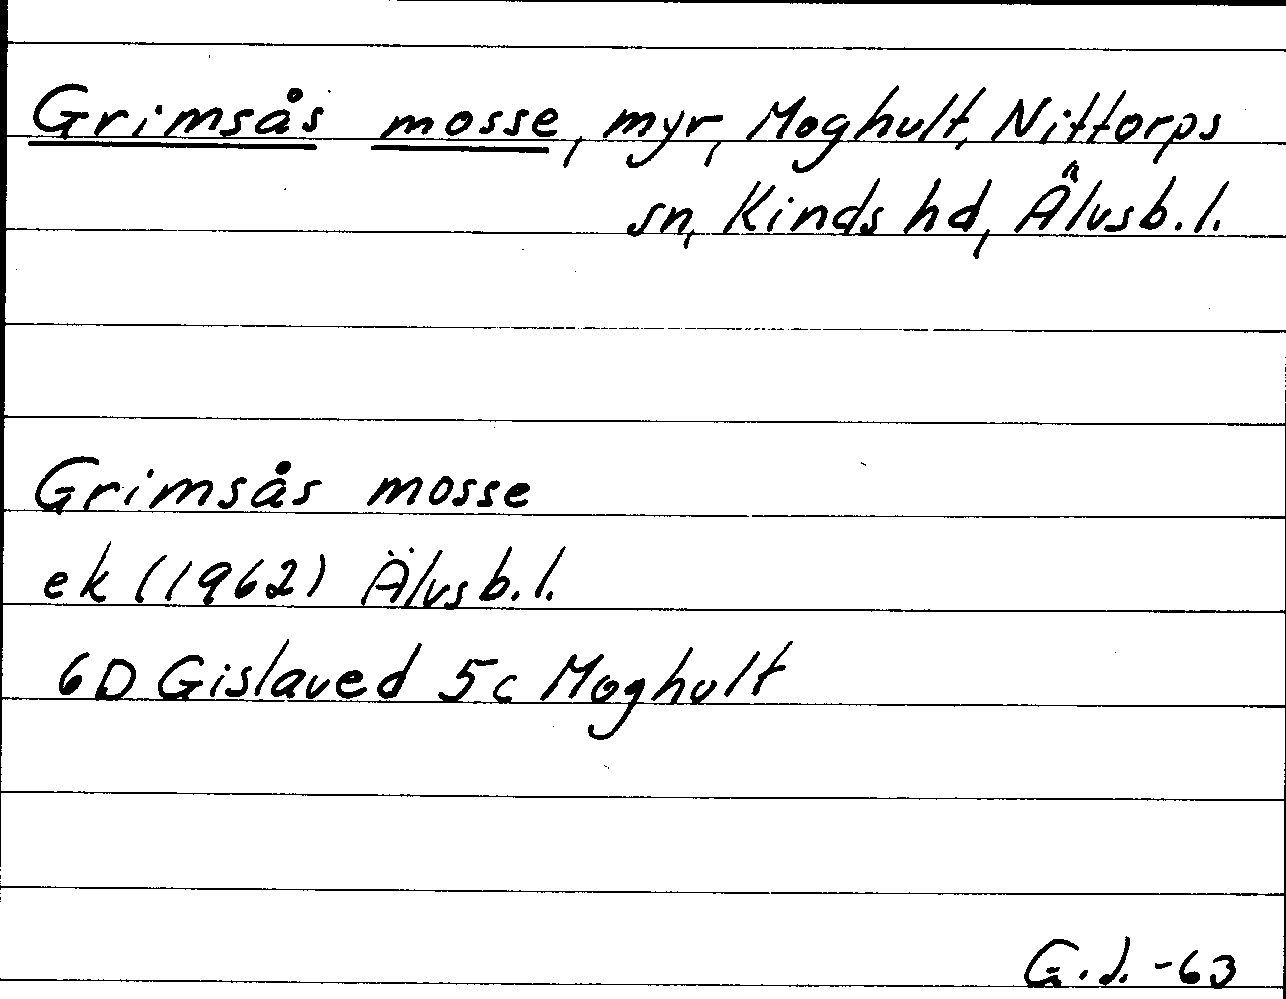 Grimsås mosse, myr, Moghult, Nittorps
sn, Kinds hd, Älvsb. l.
Grimsås mosse
ek (1962) Älvsb. l.
6D Gislaved 5c Moghult
G.J. -63